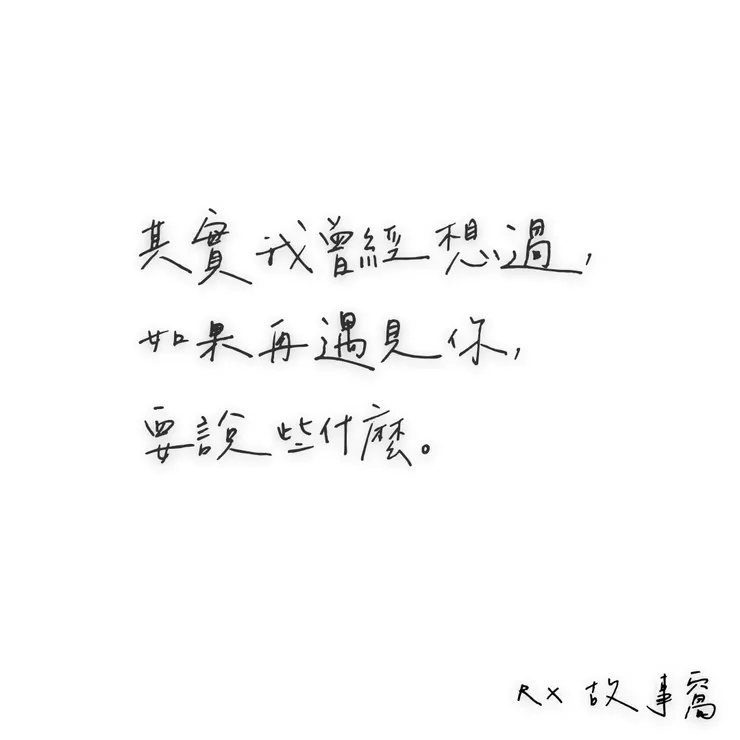 其實我曾經想過,
如果再遇見你,
要說些什麼。
RX 故事窩